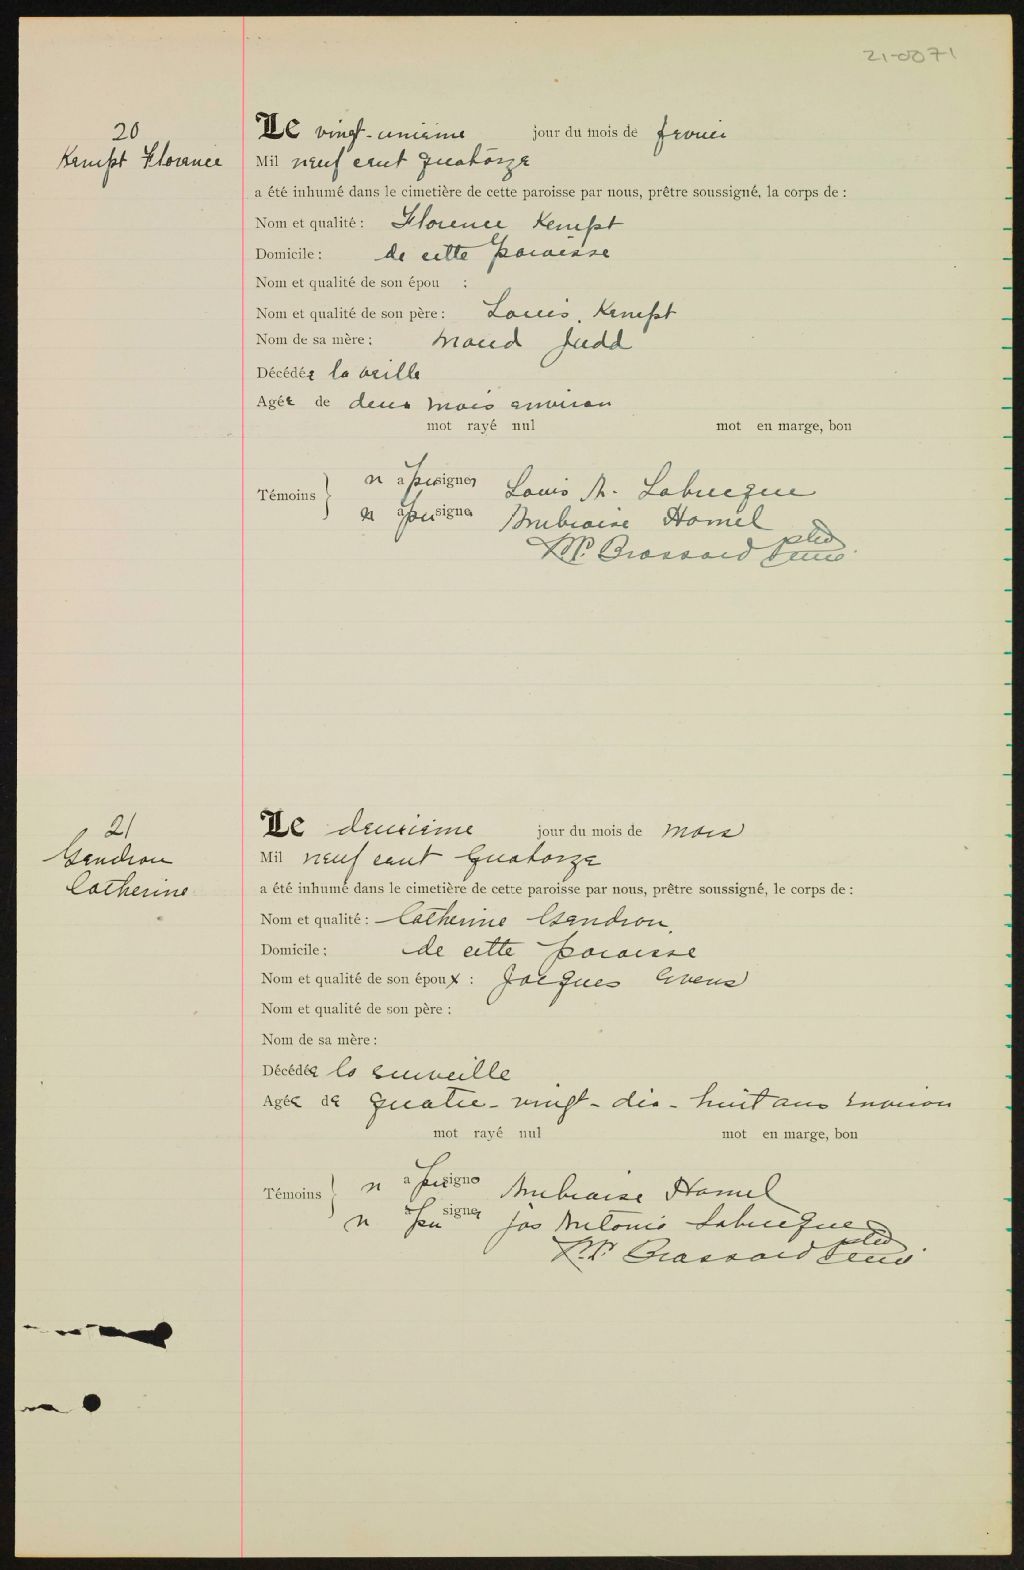 21-0071
20
Kempt Florence
Le vingt-unième jour du mois de fevrier
Mil neuf cent quatorze
a été inhumé dans le cimetière de cette paroisse par nous, prêtre soussigné, la corps de :
Nom et qualité : Florence Kempt
Domicile : de cette paroisse
Nom et qualité de son épou :
Nom et qualité de son père : Louis Kempt
Nom de sa mère : Maud Judd
Décédée la veille
Agée de deux mois environ
mot rayé nul mot en marge, bon
Témoins } n a pu signer Louis A. Labrecque
n a pu signe Ambroise Hamel
Brassard ptre
curé
21
Gendron
Catherine
Le deuxième jour du mois de mars
Mil neuf cent quatorze
a été inhumé dans le cimetière de cette paroisse par nous, prêtre soussigné, le corps de :
Nom et qualité : Catherine Gendron
Domicile : de cette paroisse
Nom et qualité de son époux : Jacques Evens
Nom et qualité de son père :
Nom de sa mère :
Décédée la surveille
Agée de quatre-vingt-dix-huit ans environ
mot rayé nul mot en marge, bon
Témoins } n a pu signe Ambroise Hamel
n a pu signer Jos Antonio Labrecque
Brassard ptre
curé